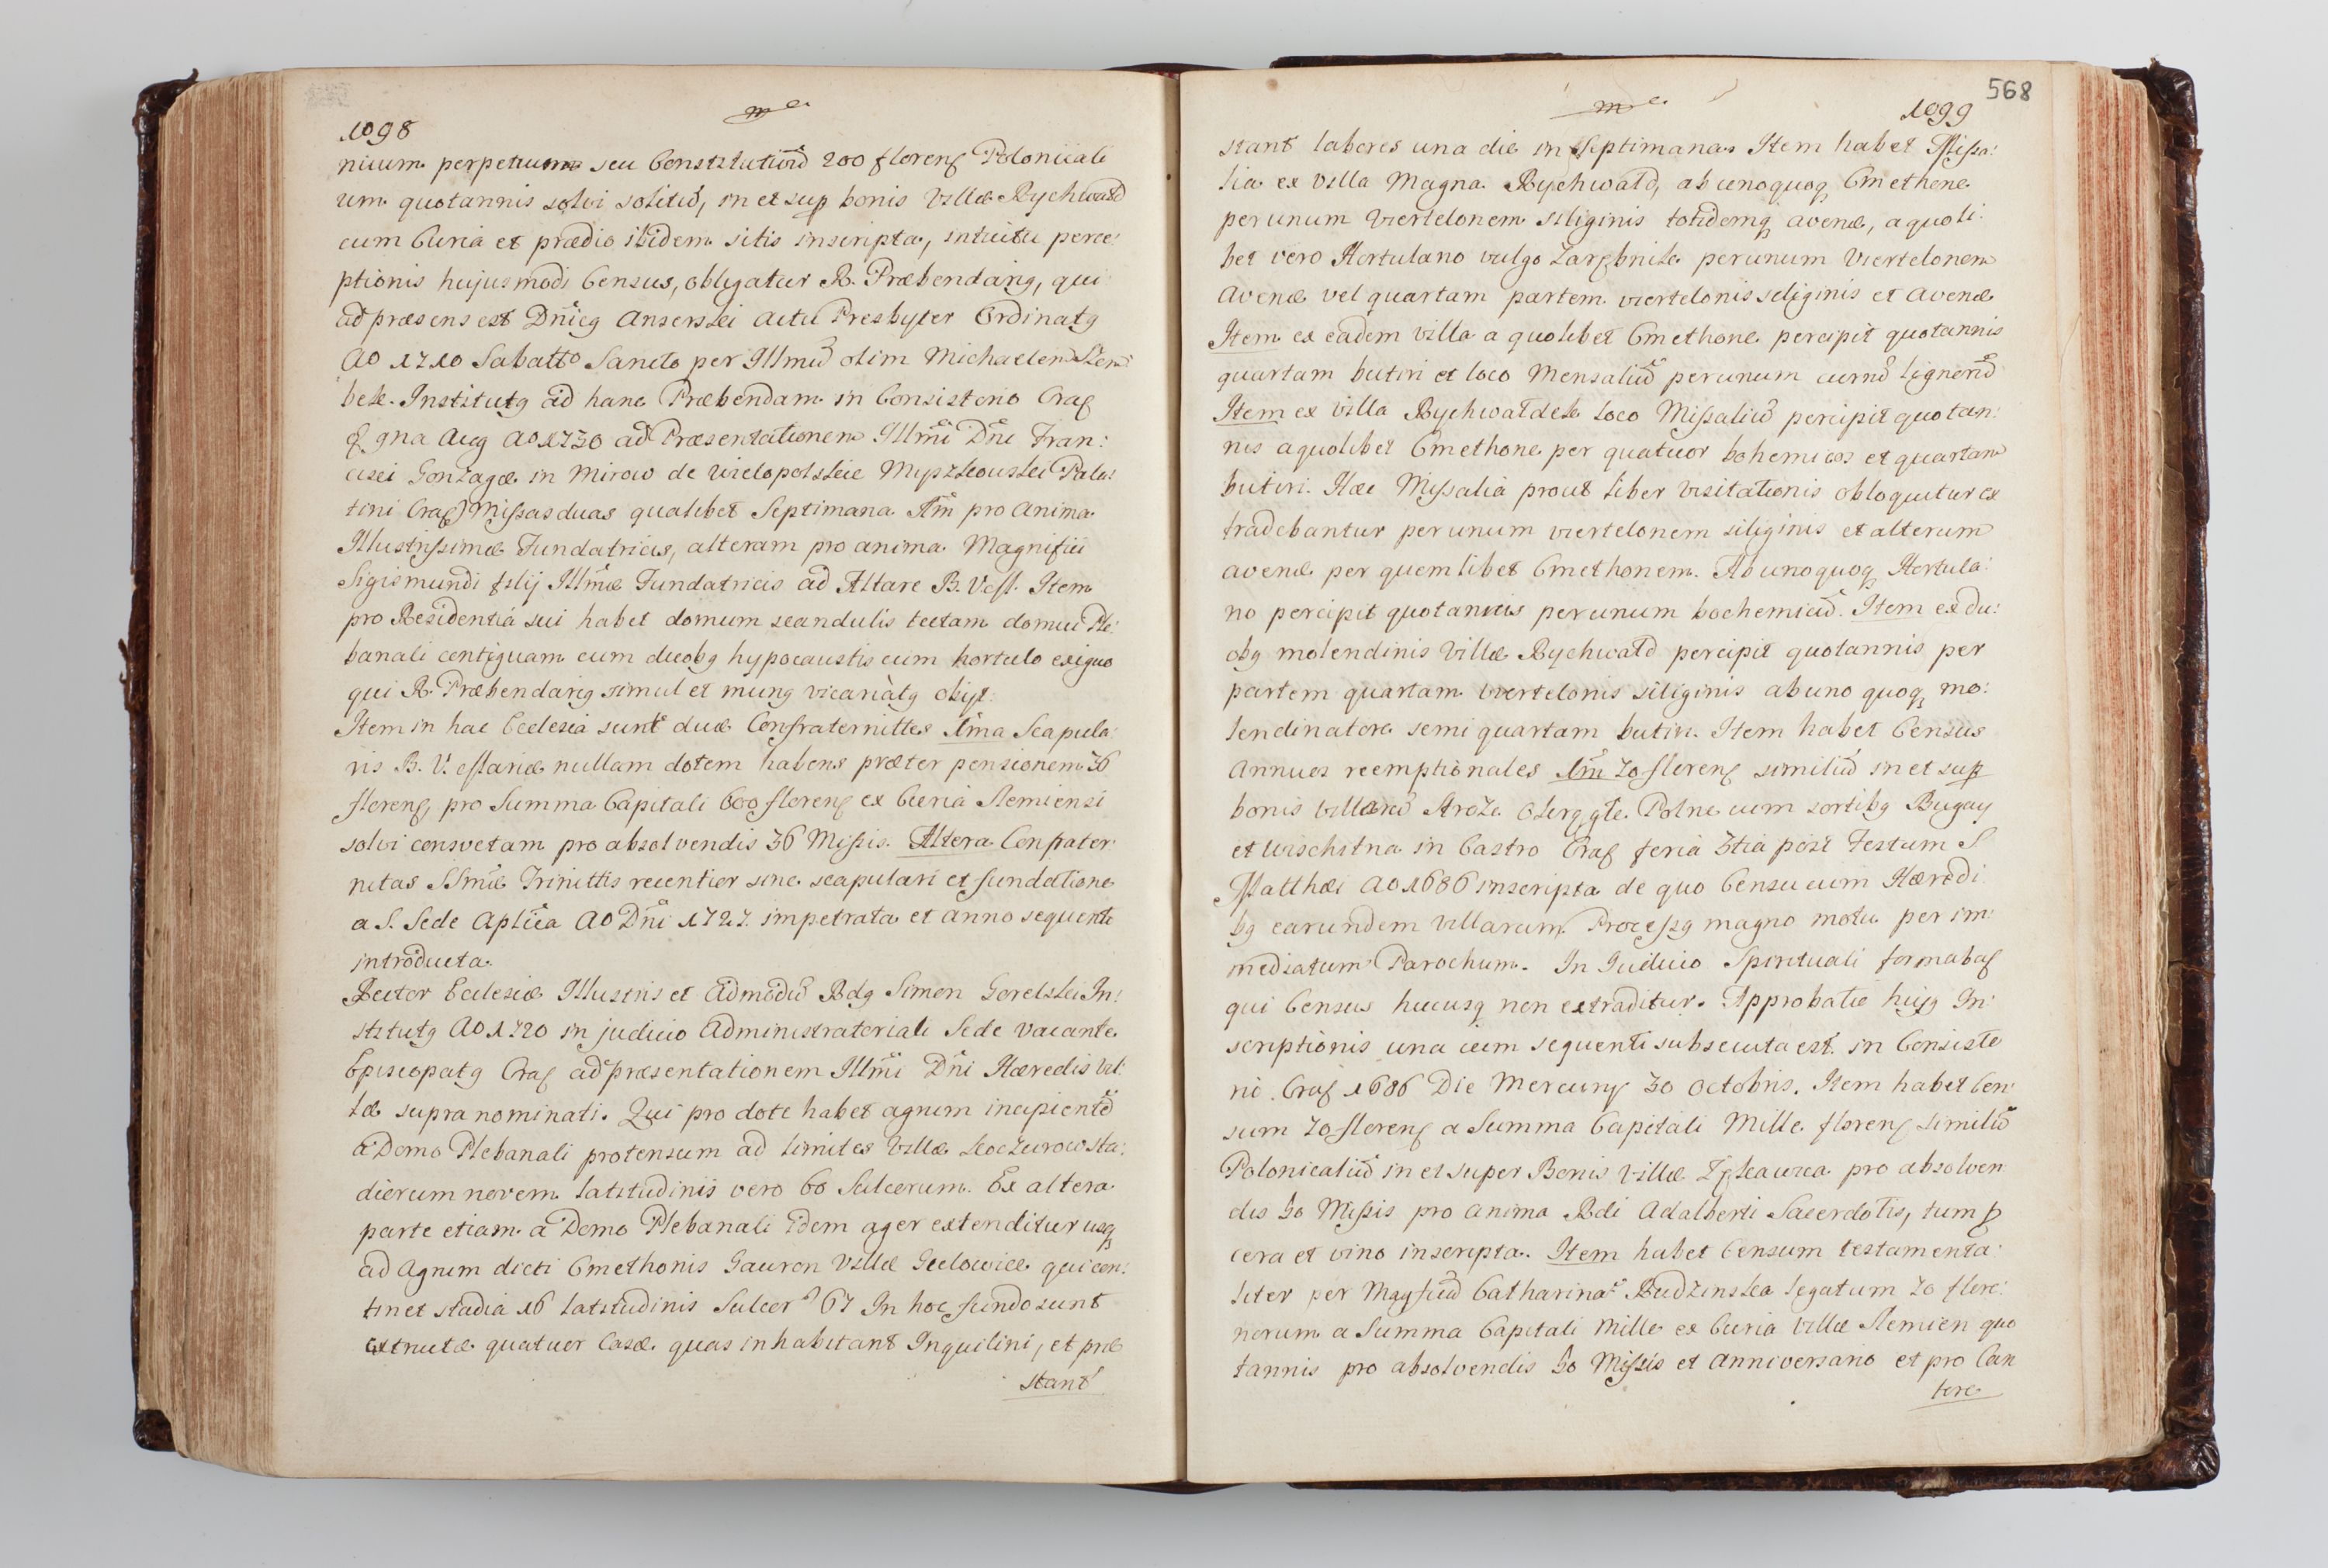 1098
nuum perpetuum seu Constitutionẽ 200 florenꝭ Poloniicali
um quotannis solvi solitũ, in et sup bonis Villæ Rychwald
cum Curia et prædio ibidem sitis inscripta, intuitu perce:
ptionis hujusmodi Census, obligatur R. Præbendariꝯ, qui
ad præsens est Dñicꝯ Anserski actu Presbyter Ordinatꝯ
Ao 1710 Sabatto Sancto per Illmũ olim Michaelem Szem
bek. Institutꝯ ad hanc Præbendam in Consistorio Cracꝭ
9na Augꝭ Ao 1730 ad Præsentationem Illmi Dñi Fran:
cisci Gonzagæ in Mirow de Wielopolskie Myszkowski Pala:
tini Cracꝭ Missas duas qualibet Septimana 1m̃ pro anima
Illustrissimæ Fundatricis, alteram pro anima Magnifici
Sigismundi filij Illm̃æ Fundatricis ad Altare B. V. M. Item
pro Residentiá sui habet domum scandulis tectam domui Ple:
banali contiguam cum duobꝯ hypocaustis cum hortulo exiguo
qui R. Præbendariꝯ simul et munꝯ vicariàtꝯ obijt.
Item in hac Ecclesia sunt duæ Confraternittes 1ma Scapula
ris B. V. Mariæ nullam dotem habens præter pensionem 36
florenꝭ, pro Summa Capitali 600 florenꝭ ex Curiá Slemiensi
solvi consvetam pro absolvendis 36 Missis. Altera Confrater
nitas SSmæ Trinittis recentior sine scapulari et fundatione
a S. Sede Aplica Ao Dñi 1727. impetrata et anno sequenti
introducta.
Rector Ecclesiæ Illustris et Admodũ Rdꝯ Simon Gorelski In:
stitutꝯ Ao 1720 in judicio Administratoriali Sede Vacante
Episcopatꝯ Cracꝭ ad præsentationem Illmi Dñi Hæredis Vil:
læ supra nominati. Qui pro dote habet agrum incipientẽ
a Domo Plebanali protensum ad limites Villæ Koczurow sta:
diorum novem latitudinis vero 60 Sulcorum. Ex altera
parte etiam a Domo Plebanali idem ager extenditur usqꝫ
ad Agrum dicti Cmethonis Gauron Villæ Gilowice qui con:
tinet stadia 16 latitudinis Sulcor 67 In hoc fundo sunt
extructæ quatuor Casæ quas inhabitant Inquilini, et præ
stant
568
1099
stant labores una die in Septimana. Item habet Missa:
lia ex Villa Magna Rychwald, ab unoquoqꝫ Cmethone
per unum Viertelonem siliginis totidemqꝫ avenæ, a quoli:
bet vero Hortulano vulgo Zarębnik per unum Viertelonem
Avenæ vel quartam partem viertelonis seliginis et Avenæ
Item ex eadem villa a quolibet Cmethone percipit quotannis
quartam butiri et loco Mensaliũ per unum currũ lignorũ
Item ex villa Rychwaldek loco Missaliũ percipit quotan:
nis a quolibet Cmethone per quatuor bohemicos et quartam
butiri. Hæc Missalia prout liber visitationis obloquitur ex
tradebantur per unum viertelonem siliginis et alterum
avenæ per quemlibet Cmethonem. Ab unoquoqꝫ Hortula:
no percipit quotannis per unum bochemicũ. Item ex du:
obꝯ molendinis Villæ Rychwald percipit quotannis per
partem quartam viertelonis siliginis ab uno quoqꝫ mo:
lendinatore semi quartam butiri. Item habet Census
Annuos reemptionales 1m̃ 70 florenꝭ similiũ in et sup
bonis villarũ Stroze Polne cum sortibꝯ Bugay
et in Castro Cracꝭ feriá 3tia post Festum S
Matthæi Ao 1686 inscripta de quo Censu cum Hæredi
bꝯ earundem villarum Processꝯ magno motu per im:
mediatum Parochum. In Judicio Spirituali formabaꝭ
qui Census hucusqꝫ non extraditur. Approbatio hujꝯ In:
scriptionis una cum sequenti subsecuta est. in Consisto
rio. Cracꝭ 1686 Die Mercurij 30 Octobris. Item habet Cen:
sum 70 florenꝭ a Summa Capitali Mille florenꝭ similiũ
Polonicaliũ in et super Bonis Villæ pro absolven
dis 30 Missis pro anima Rdi Adalberti Sacerdotis, tum p
cera et vino inscripta. Item habet Censum testamenta:
liter per Magficũ Catharina Rudzinska legatum 70 flore:
norum a Summa Capitali Mille ex Curia Villæ Slemien quo
tannis pro absolvendis 30 Missis et Anniversario et pro Can
tore